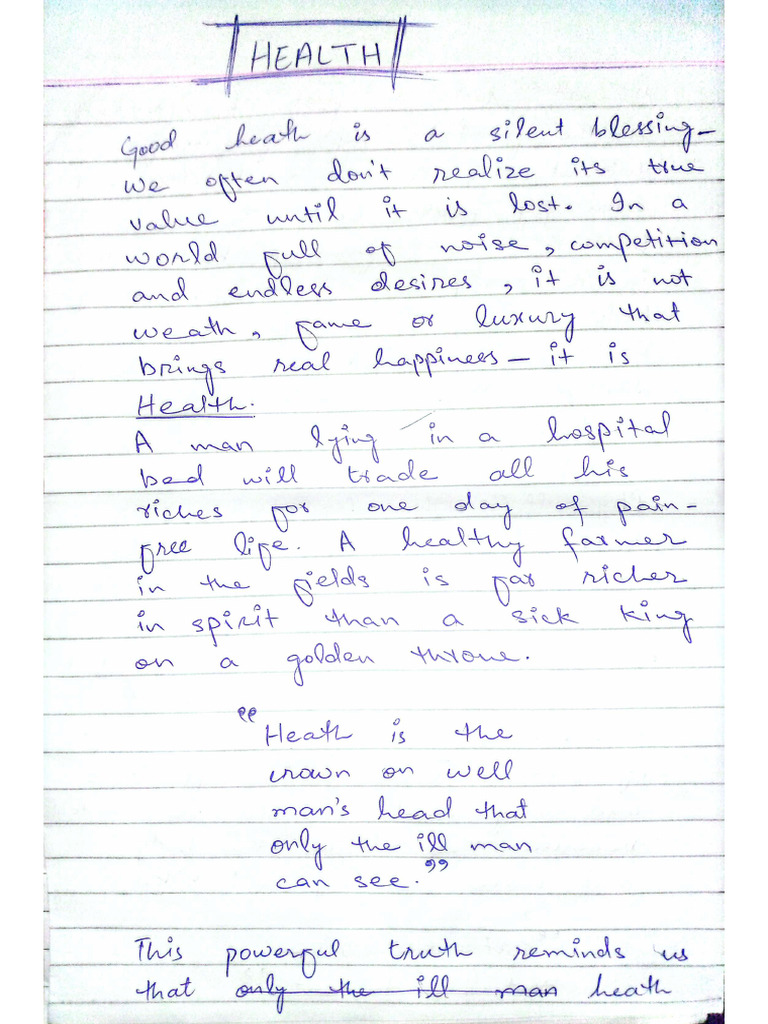 HEALTH
Good heath is a silent blessing—
we often don't realize its true
value until it is lost. In a
world full of noise, competition
and endless desires, it is not
weath, fame or luxury that
brings real happiness — it is
Health.
A man lying in a hospital
bed will trade all his
riches for one day of pain-
free life. A healthy farmer
in the fields is far richer
in spirit than a sick king
on a golden throne.
"Heath is the
crown on well
man's head that
only the ill man
can see."
This powerful truth reminds us
that only the ill man heath